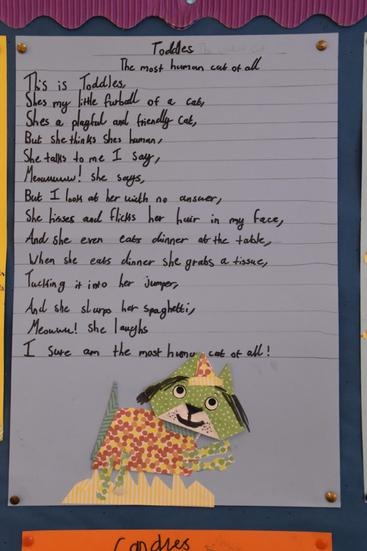 Toddles
The most human cat of all
This is Toddles,
Shes my little furball of a cat,
Shes a playful and friendly cat,
But she thinks shes human,
She talks to me I say,
Meowwww! she says,
But I look at her with no answer,
She hisses and flicks her hair in my face,
And she even eats dinner at the table,
When she eats dinner she grabs a tissue,
Tucking it into her jumper,
And she slurps her spaghetti,
Meowww! she laughs
I sure am the most human cat of all!
Candles